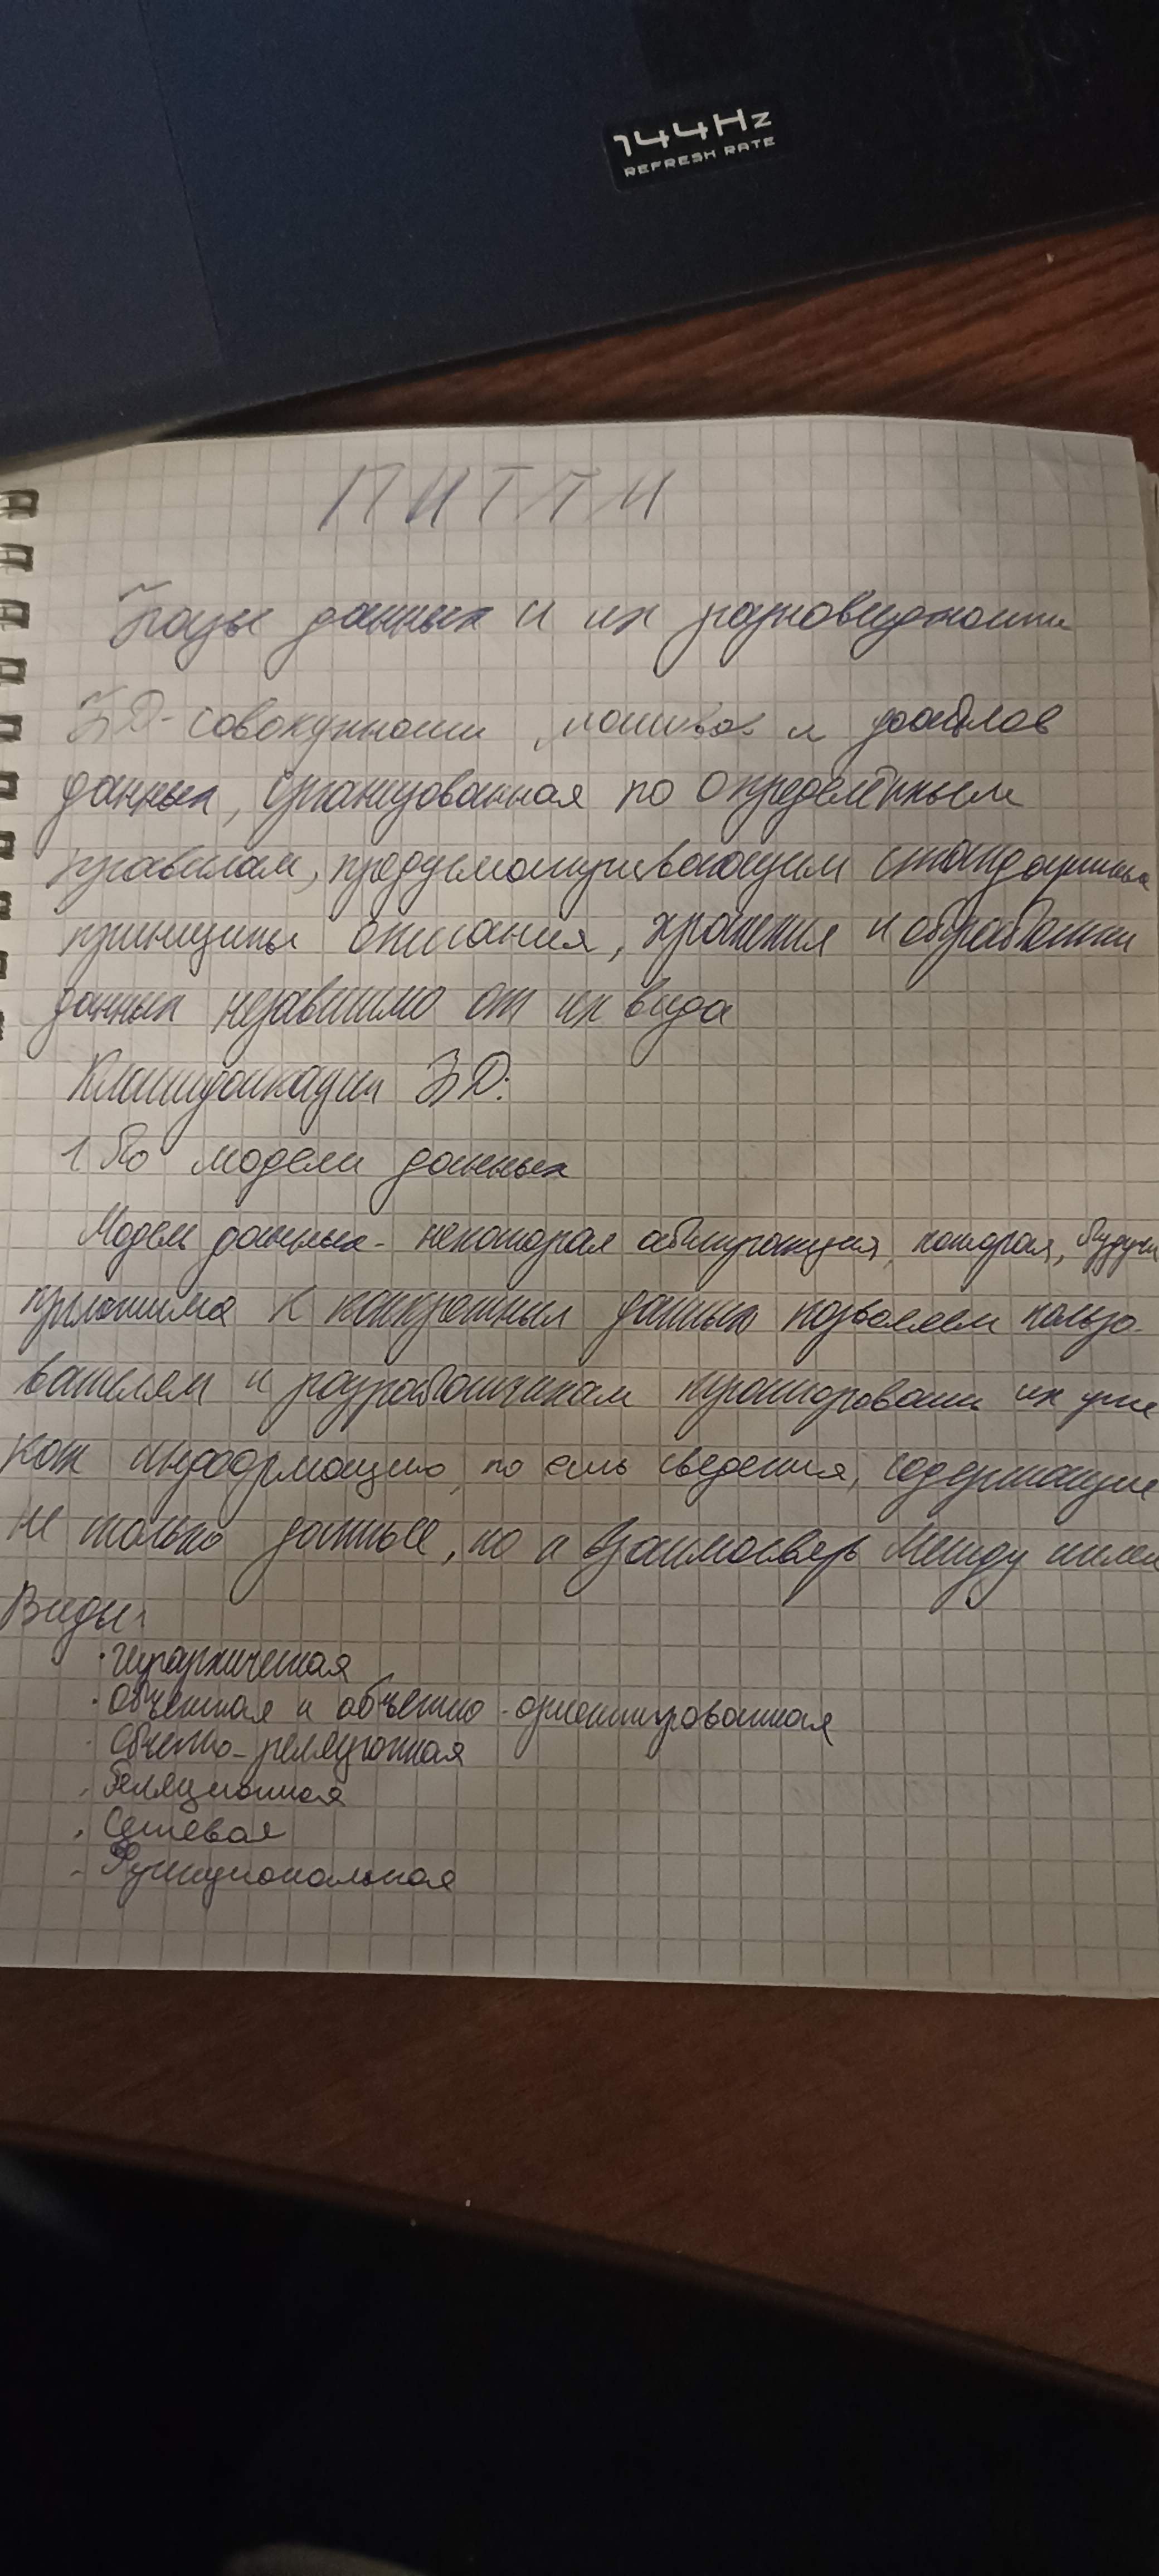 144Hz
REFRESH RATE
ПИТТИ
Базы данных и их разновидности
БД - совокупность массивов и файлов
данных, организованная по определённым
правилам, предусматривающим стандартные
принципы описания, хранения и обработки
данных независимо от их вида
Классификация БД:
1 По модели данных
Модель данных - некоторая абстракция, которая, будучи
приложима к конкретным данным позволяет пользо-
вателям и разработчикам трактовать их уже
как информацию, то есть сведения, содержащие
не только данные, но и взаимосвязь между ними
Виды:
· иерархическая
· объектная и объектно - ориентированная
· объектно - реляционная
· Реляционная
· Сетевая
- Функциональная